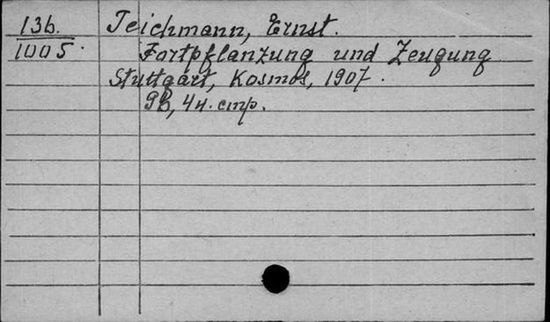 136. Teichmann, Ernst.
1005. Fortpflanzung und Zeugung
Stuttgart, Kosmos, 1907.
98, 4н. стр.